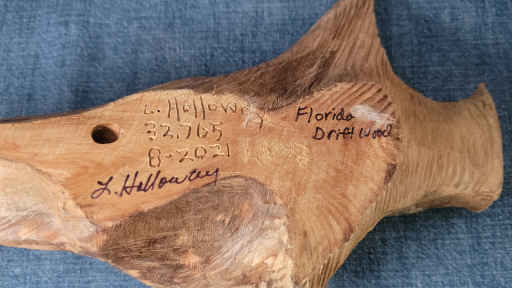 L. Holloway
32,765
8-2021
L. Holloway
Florida
Driftwood